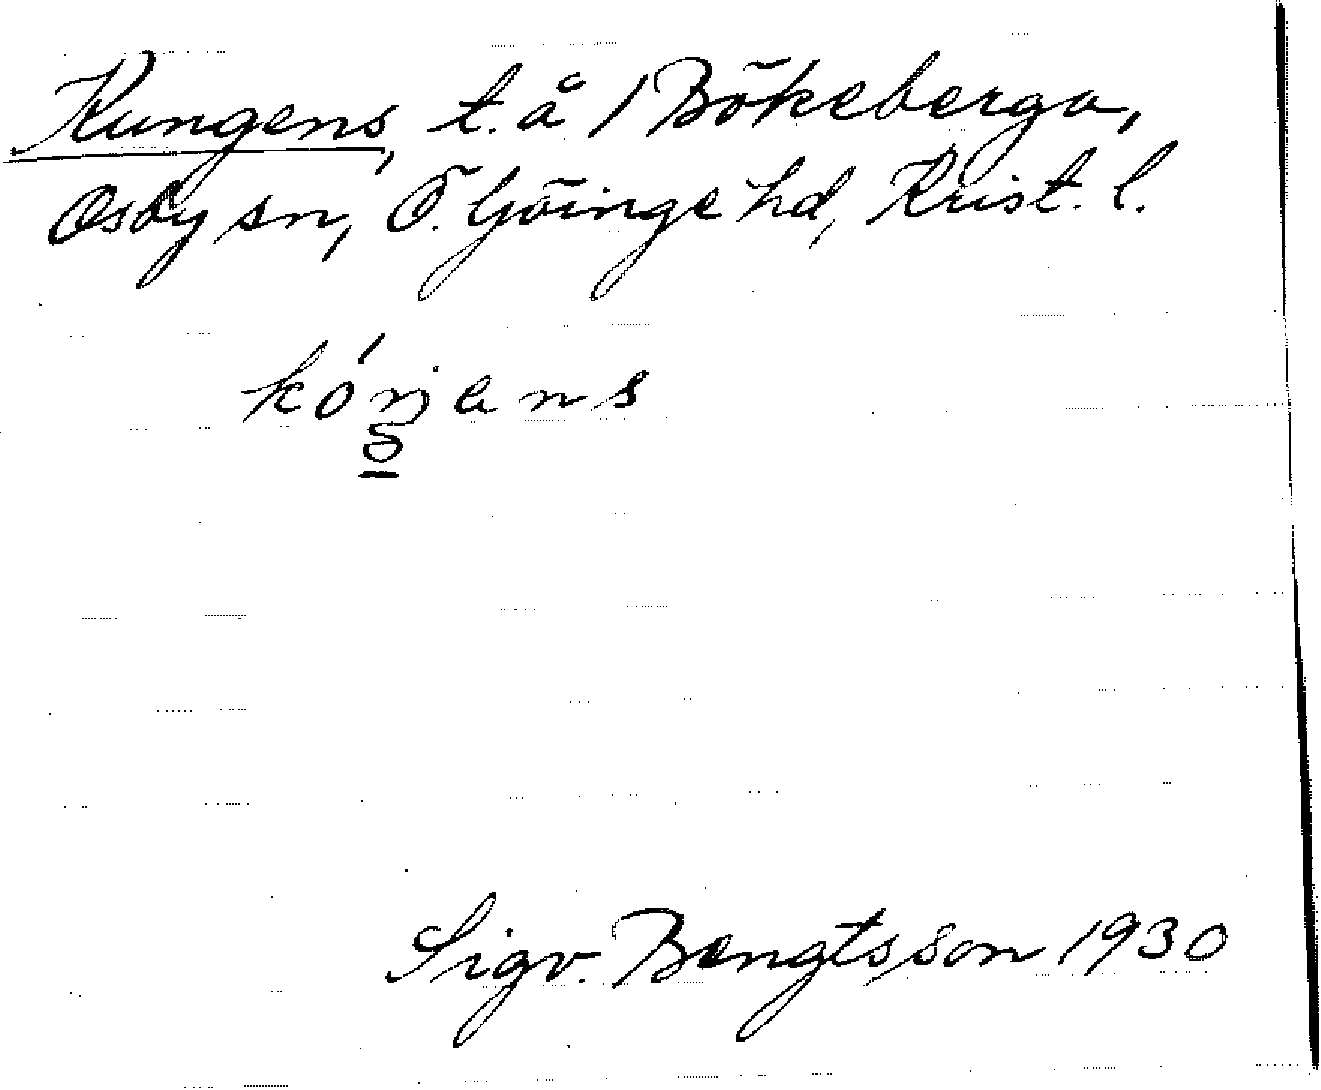 Kungens, t. å / Bökeberga,
Osby sn, Ö. Göinge hd, Krist. l.
Sigv. Bengtsson 1930